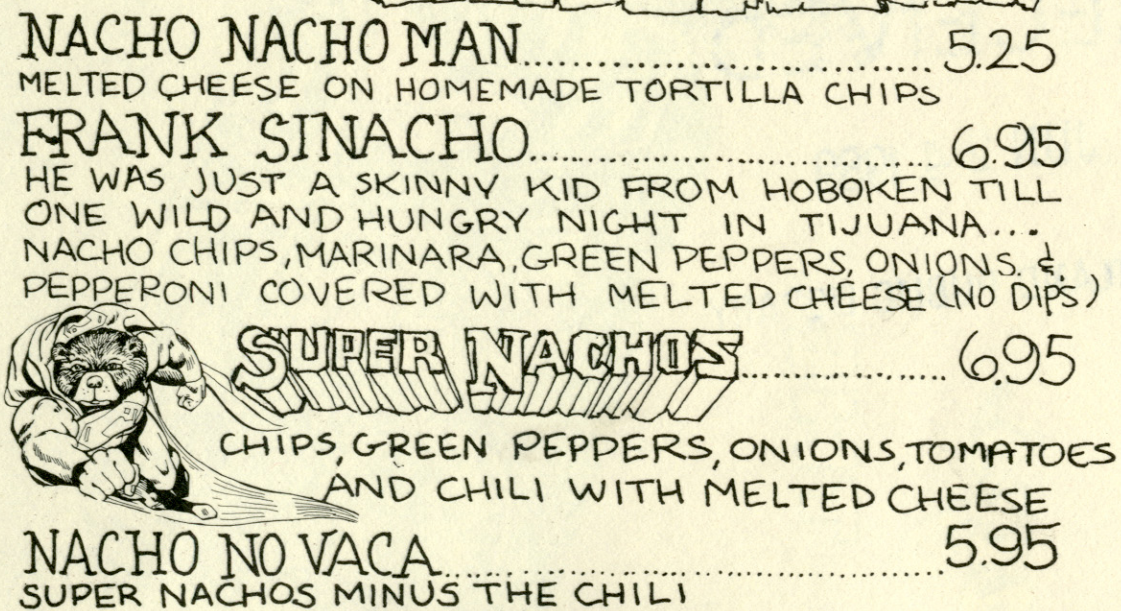 NACHO NACHO MAN.................................. 5.25
MELTED CHEESE ON HOMEMADE TORTILLA CHIPS
FRANK SINACHO.................................. 6.95
HE WAS JUST A SKINNY KID FROM HOBOKEN TILL
ONE WILD AND HUNGRY NIGHT IN TIJUANA...
NACHO CHIPS, MARINARA, GREEN PEPPERS, ONIONS. &
PEPPERONI COVERED WITH MELTED CHEESE (NO DIPS)
SUPER NACHOS.................. 6.95
CHIPS, GREEN PEPPERS, ONIONS, TOMATOES
AND CHILI WITH MELTED CHEESE
NACHO NO VACA.................................. 5.95
SUPER NACHOS MINUS THE CHILI